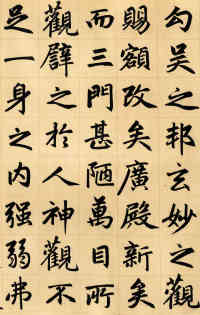 勾吴之邦玄妙之觀
賜額改矣廣殿新矣
而三門甚陋萬目所
觀譬之於人神觀不
足一身之内强弱弗